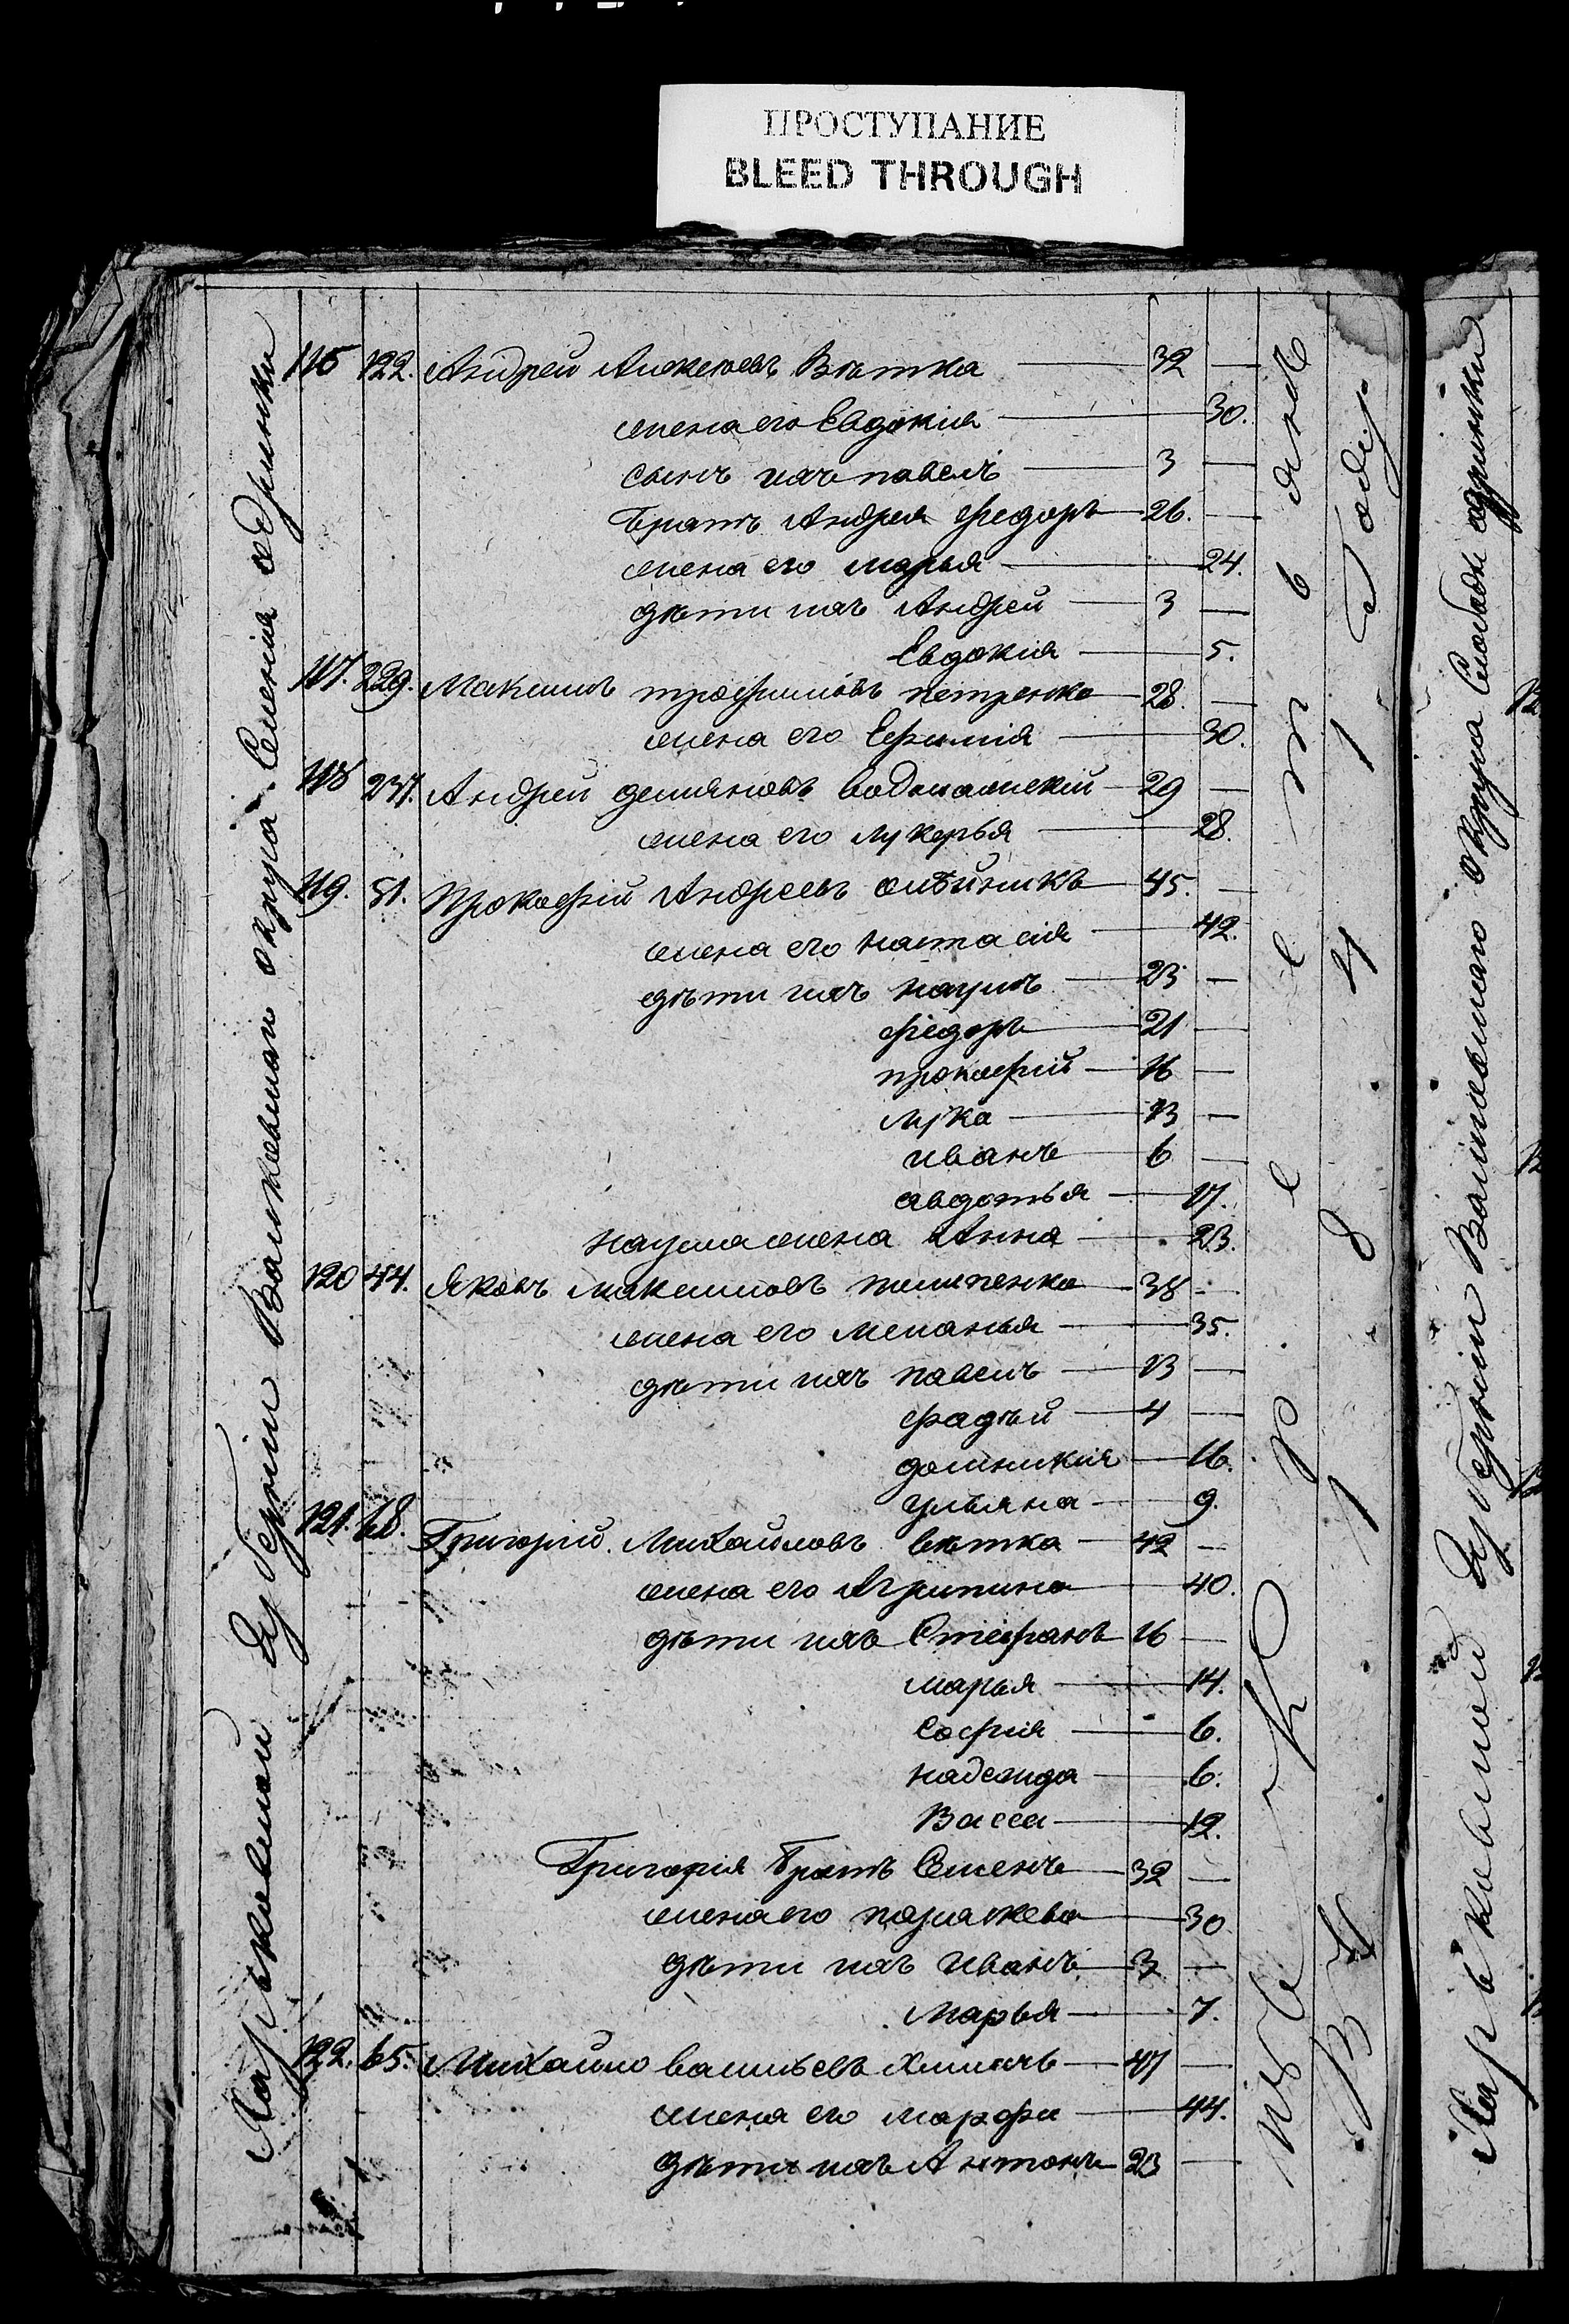 ПРОСТУПАНИЕ
BLEED THROUGH
Харьковской Губернiи Валковскаго округа Селенiя одринки
122. Андрей Алексеевъ Вѣтка — 32 —
жена его Евдокiя — 30.
сынъ ихъ павелъ — 3 —
братъ Андрея федоръ — 26. —
жена его марья — 24.
дѣти ихъ Андрей — 3 —
Евдокiя — 5.
117. 229. Максимъ трофимовъ петренко — 28. —
жена его Ефимiя — 30.
118 237. Андрей демяновъ водолажскiй — 29 —
жена его лукерья — 28.
119. 51. Прокофiй Андреевъ олѣйникъ — 45. —
жена его настасiя — 42.
дѣти ихъ наумъ — 23 —
федоръ — 21 —
прокофiй — 16 —
лука — 13 —
иванъ — 6 —
авдотья — 17.
наума жена Анна — 23.
120 44. Яковъ максимовъ пилипенко — 38 —
жена его меланья — 35.
дѣти ихъ павелъ — 13 —
фадѣй — 4 —
домникiя — 16.
ульяна — 9.
121. 68. Григорiй Михайловъ вѣтка — 42 —
жена его Агрипина — 40.
дѣти ихъ Стефанъ — 16 —
марья — 14.
Софiя — 6.
надежда — 6.
Васса — 12.
Григорiя братъ Семенъ — 32 —
жена его параскева — 30
дѣти ихъ иванъ — 3 —
марья — 7.
122. 65. Михайло васильевъ — 47 —
жена его марфа — 44.
дѣти ихъ Антонъ — 23 —
крестьянъ
Въ 1841 Году.
Харьковской Губернiи Валковскаго округа Слободы одринки